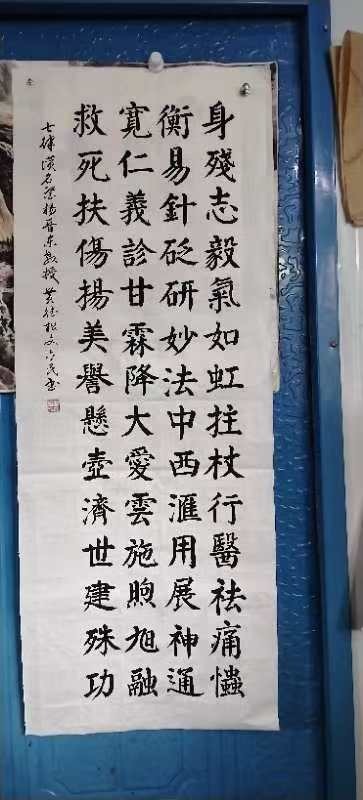 身殘志毅氣如虹拄杖行醫祛痛
衡易針砭研妙法中西滙用展神通
寛仁義診甘霖降大愛雲施煦旭融
救死扶傷揚美譽懸壺濟世建殊功
七律 名 楊晋東教授 黄德松文 民書